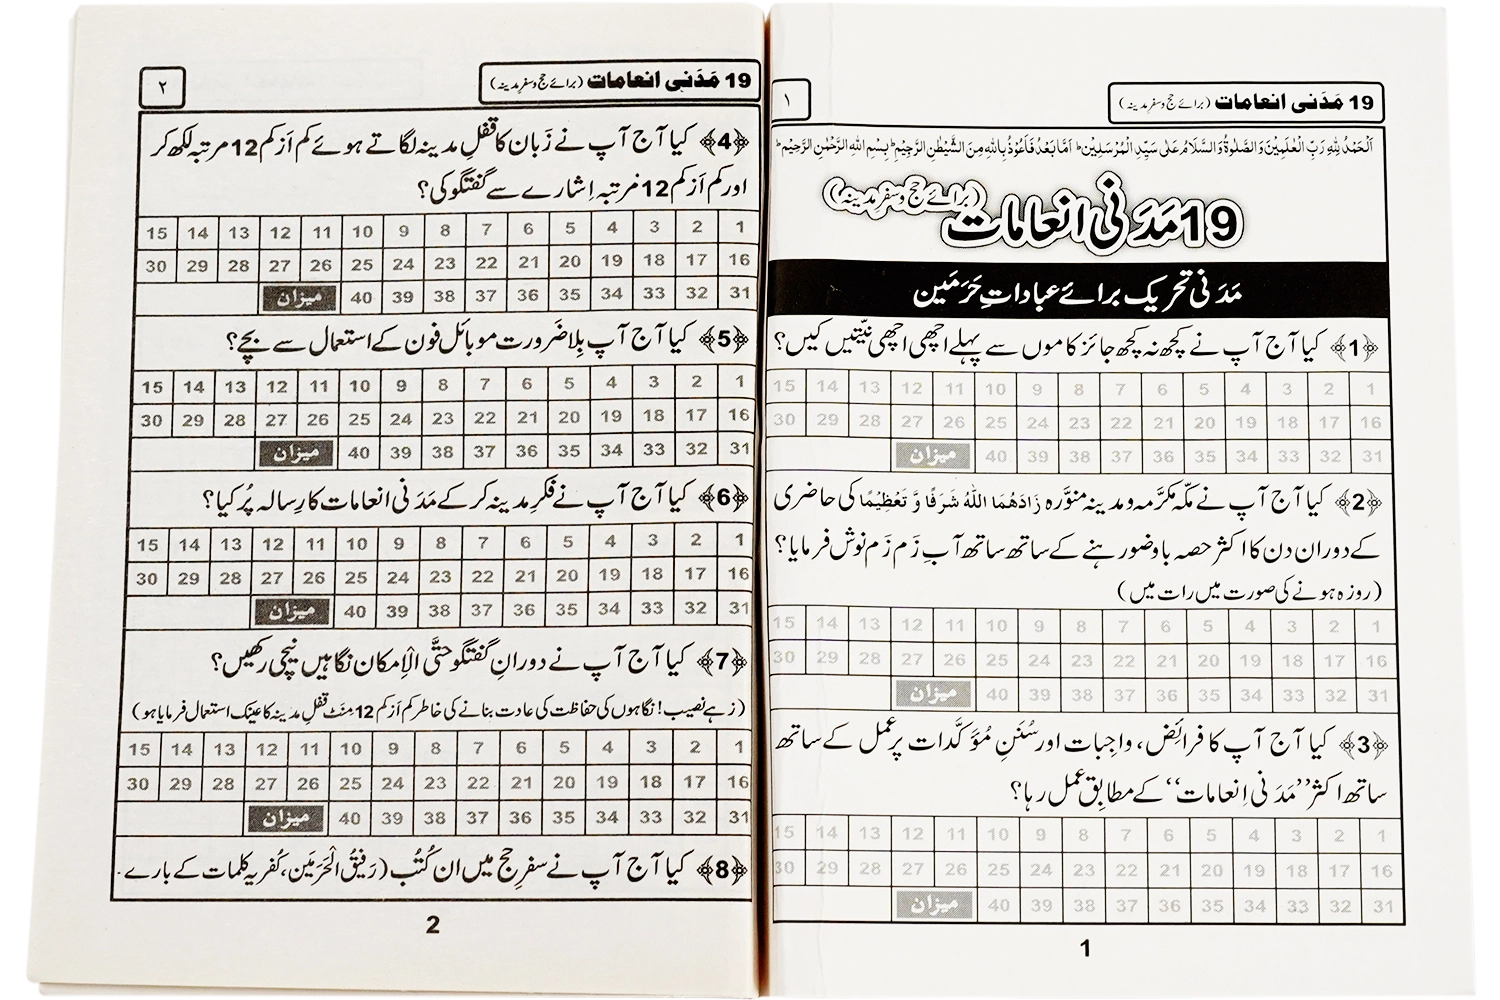 19 مَدَنی انعامات (برائے حج و سفرِ مدینہ)
۱
اَلْحَمْدُ لِلّٰہِ رَبِّ الْعٰلَمِیْنَ وَالصَّلٰوۃُ وَالسَّلَامُ عَلٰی سَیِّدِ الْمُرْسَلِیْنَ ط اَمَّا بَعْدُ فَاَعُوْذُ بِاللّٰہِ مِنَ الشَّیْطٰنِ الرَّجِیْمِ ط بِسْمِ اللّٰہِ الرَّحْمٰنِ الرَّحِیْمِ ط
19 مَدَنی انعامات (برائے حج و سفرِ مدینہ)
مَدَنی تحریک برائے عباداتِ حَرَمَین
﴿1﴾ کیا آج آپ نے کچھ نہ کچھ جائز کاموں سے پہلے اچھی اچھی نیّتیں کیں؟
1 2 3 4 5 6 7 8 9 10 11 12 13 14 15
16 17 18 19 20 21 22 23 24 25 26 27 28 29 30
31 32 33 34 35 36 37 38 39 40 میزان
﴿2﴾ کیا آج آپ نے مکّہ مکرَّمہ و مدینہ منوَّرہ زَادَھُمَا اللّٰہُ شَرَفًا وَّ تَعْظِیْمًا کی حاضری
کے دوران دن کا اکثر حصہ باوضو رہنے کے ساتھ ساتھ آبِ زَم زَم نوش فرمایا؟
(روزہ ہونے کی صورت میں رات میں)
1 2 3 4 5 6 7 8 9 10 11 12 13 14 15
16 17 18 19 20 21 22 23 24 25 26 27 28 29 30
31 32 33 34 35 36 37 38 39 40 میزان
﴿3﴾ کیا آج آپ کا فرائض، واجبات اور سُنَنِ مُؤَکَّدات پر عمل کے ساتھ
ساتھ اکثر ”مَدَنی اِنعامات“ کے مطابِق عمل رہا؟
1 2 3 4 5 6 7 8 9 10 11 12 13 14 15
16 17 18 19 20 21 22 23 24 25 26 27 28 29 30
31 32 33 34 35 36 37 38 39 40 میزان
1
19 مَدَنی انعامات (برائے حج و سفرِ مدینہ)
۲
﴿4﴾ کیا آج آپ نے زَبان کا قفلِ مدینہ لگاتے ہوئے کم اَز کم 12 مرتبہ لکھ کر
اور کم اَز کم 12 مرتبہ اِشارے سے گفتگو کی؟
1 2 3 4 5 6 7 8 9 10 11 12 13 14 15
16 17 18 19 20 21 22 23 24 25 26 27 28 29 30
31 32 33 34 35 36 37 38 39 40 میزان
﴿5﴾ کیا آج آپ بِلا ضَرورت موبائل فون کے استعمال سے بچے؟
1 2 3 4 5 6 7 8 9 10 11 12 13 14 15
16 17 18 19 20 21 22 23 24 25 26 27 28 29 30
31 32 33 34 35 36 37 38 39 40 میزان
﴿6﴾ کیا آج آپ نے فکرِ مدینہ کر کے مَدَنی انعامات کا رِسالہ پُر کیا؟
1 2 3 4 5 6 7 8 9 10 11 12 13 14 15
16 17 18 19 20 21 22 23 24 25 26 27 28 29 30
31 32 33 34 35 36 37 38 39 40 میزان
﴿7﴾ کیا آج آپ نے دورانِ گفتگو حتَّی الْاِمکان نگاہیں نیچی رکھیں؟
(زہے نصیب! نگاہوں کی حفاظت کی عادت بنانے کی خاطر کم اَز کم 12 منٹ قفلِ مدینہ کا عینک استعمال فرمایا ہو)
1 2 3 4 5 6 7 8 9 10 11 12 13 14 15
16 17 18 19 20 21 22 23 24 25 26 27 28 29 30
31 32 33 34 35 36 37 38 39 40 میزان
﴿8﴾ کیا آج آپ نے سفرِ حج میں ان کُتُب (رَفیقُ الْحَرَمَین، کُفریہ کلمات کے بارے
2